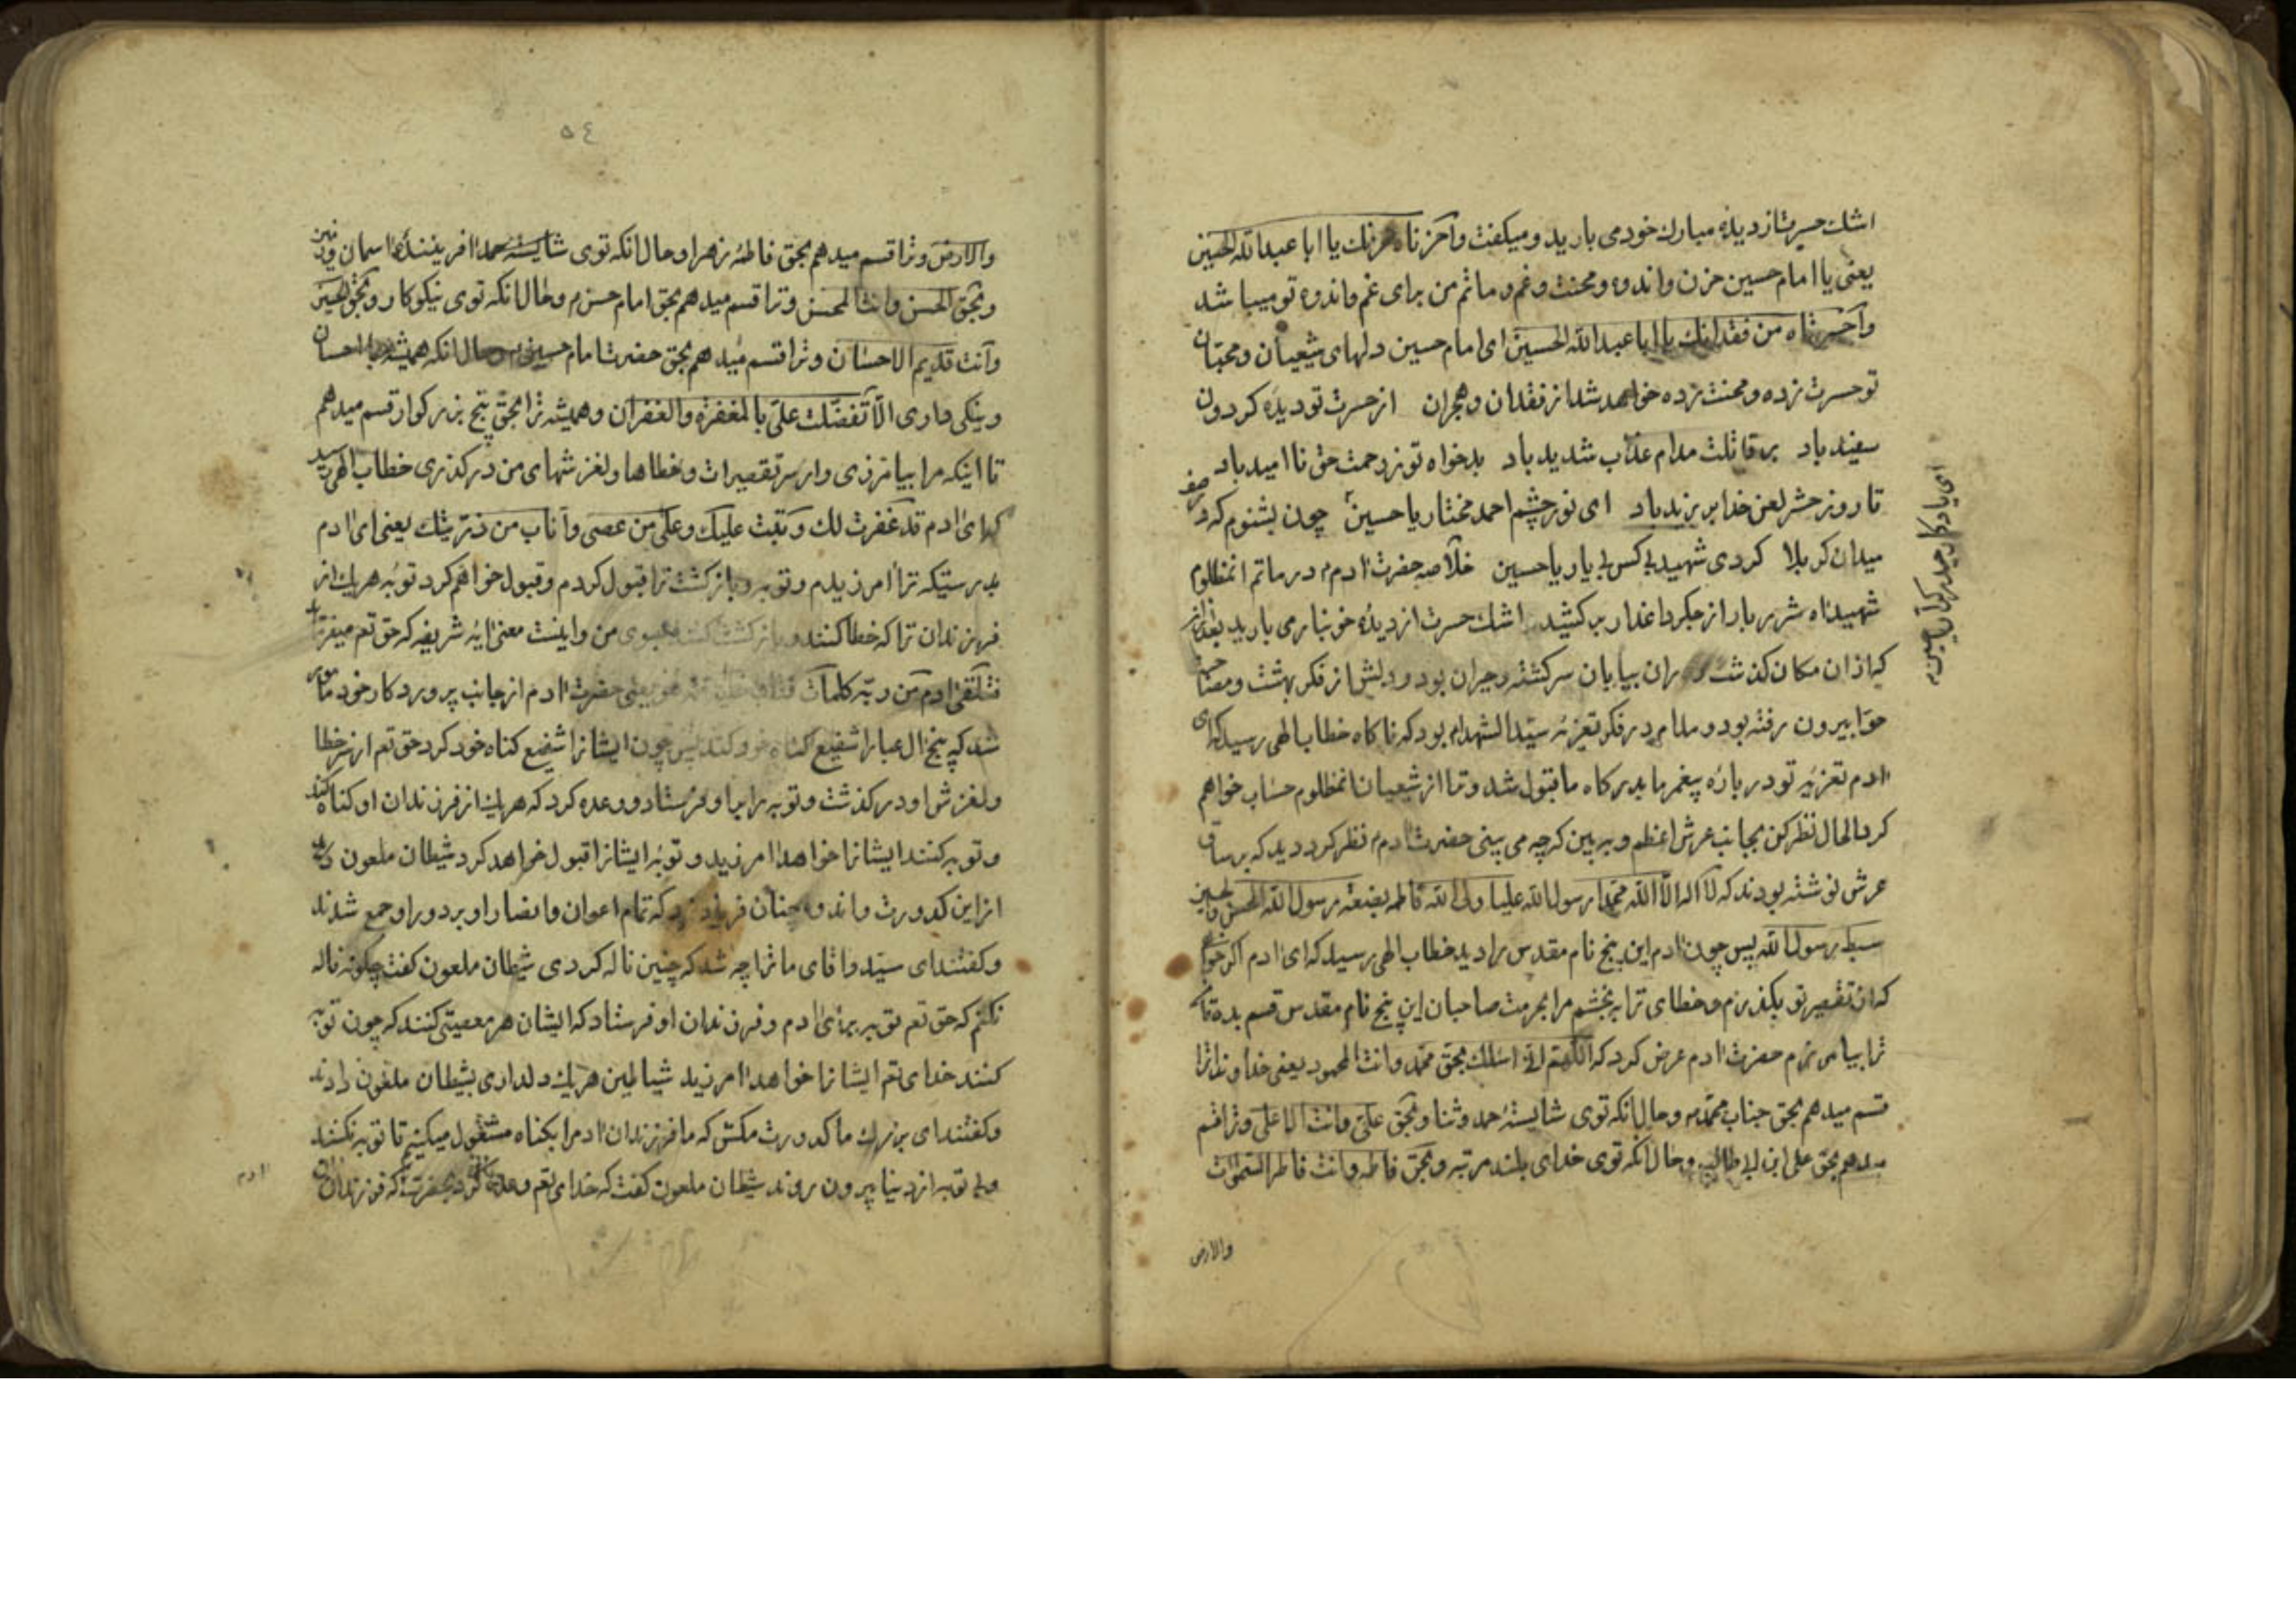 اشك حسرت از دیدهٔ مبارك خود می بارید و میكفت وآحزناه حزنك یا ابا عبدالله الحسین
یعنی یا امام حسین حزن و اندوه و محنت و غم و ماتم من برای غم و اندوه تو میباشد
وآحسرتاه من فقدانك یا ابا عبدالله الحسین ای امام حسین دلهای شیعیان و محبّان
تو حسرت زده و محنت زده خواهد شد از فقدان و هجران از حسرت تو دیدهٔ كردون
سفید باد بر قاتلت مدام عذاب شدید باد بدخواه تو ز رحمت حق نا امید باد
تا روز حشر لعن خدا بر یزید باد ای نور چشم احمد مختار یا حسین چون بشنوم كه در صف
میدان كربلا كردی شهید بی كس بی یار یا حسین خلاصه حضرت ادم در ماتم انمظلوم
شهید اه شرربار از جكر داغدار بر كشید اشك حسرت از دیدهٔ خونبار می بارید بعد از
كه از ان مكان كذشت در ان بیابان سركشته و حیران بود و دلش از فكر بهشت و مصیبت
حوّا بیرون رفته بود و مدام در فكر تعزیهٔ سیّد الشهدا بود كه ناكاه خطاب الهی رسید كه ای
ادم تعزیهٔ تو در بارهٔ پیغمر ما بدركاه ما قبول شد و ترا از شیعیان انمظلوم حساب خواهم
كرد الحال نظر كن بجانب عرش اعظم و ببین كه چه می بینی حضرت ادم نظر كرد دید كه بر ساق
عرش نوشته بودند كه لا اله الّا الله محمّدا رسول الله علیا ولی الله فاطمه بضعته رسول الله الحسن و الحسین
سبط رسول الله پس چون ادم این پنج نام مقدس را دید خطاب الهی رسید كه ای ادم اكر خواهی
كه از تقصیر تو بكذرم و خطای ترا ببخشم مرا بحرمت صاحبان این پنج نام مقدس قسم بده تا كه
ترا بیامرزم حضرت ادم عرض كرد كه اللّهم انّی اسئلك بحق محمّد و انت المحمود یعنی خداوندا ترا
قسم میدهم بحق جناب محمّد و حال انكه توی شایستهٔ حمد و ثنا و بحقّ علیّ و انت الاعلی و ترا قسم
میدهم بحق علی ابن ابی طالب و حال انكه توی خدای بلند مرتبه و بحقّ فاطمه و انت فاطر السّموات
والارض
ای یادكار حیدر كرار یا حسین
٥٤
والارض و ترا قسم میدهم بحق فاطمهٔ زهرا و حال انكه توی شایستهٔ حمد افرینندهٔ اسمان و زمین
و بحقّ الحسن و انت المحسن و ترا قسم میدهم بحق امام حسن و حال انكه توی نیكوكار و بحقّ الحسین
و انت قدیم الاحسان و ترا قسم میدهم بحق حضرت امام حسین و حال انكه همیشه احسان
و نیكی داری الّا تفضّلت علیّ بالمغفرة والغفران و همیشه ترا بحق پنج بزركوار قسم میدهم
تا اینكه مرا بیامرزی و از سر تقصیرات و خطاها و لغزشهای من دركذری خطاب الهی رسید
كه ای ادم قد غفرت لك و تبت علیك و علی من عصی و آناب من ذرّیتك یعنی ای ادم
بدرستیكه ترا امرزیدم و توبه و بازكشت ترا قبول كردم و قبول خواهم كرد توبهٔ هر یك از
فرزندان ترا كه خطا كنند و بازكشت كنند بسوی من و اینست معنی ایهٔ شریفه كه حق تعم میفرماید
فتلقی ادم من ربّه كلمات فتاب علیه یعنی حضرت ادم از جانب پروردكار خود مأمور
شد كه پنج ال عبا را شفیع كناه خود كند پس چون ایشانرا شفیع كناه خود كرد حق تعم از خطا
و لغزش او دركذشت و توبه را بیاو فرستاد و وعده كرد كه هر یك از فرزندان او كناه كنند
و توبه كنند ایشانرا خواهد امرزید و توبهٔ ایشانرا قبول خواهد كرد شیطان ملعون
از این كدورت و اندوه چنان فریاد زد كه تمام اعوان و انصار او بر دور او جمع شدند
و كفتند ای سیّد و اقای ما ترا چه شد كه چنین ناله كردی شیطان ملعون كفت چكونه ناله
نكنم كه حق تعم توبه برای ادم و فرزندان او فرستاد كه ایشان هر معصیتی كنند كه چون توبه
كنند خدای تعم ایشانرا خواهد امرزید شیاطین هر یك دلداری بشیطان ملعون دادند
و كفتند ای بزرك ما كدورت مكش كه ما فرزندان ادمرا بكناه مشغول میكنیم تا توبه نكنند
و بی توبه از دنیا بیرون روند شیطان ملعون كفت كه خدای تعم وعده كرده كه فرزندان
ادم